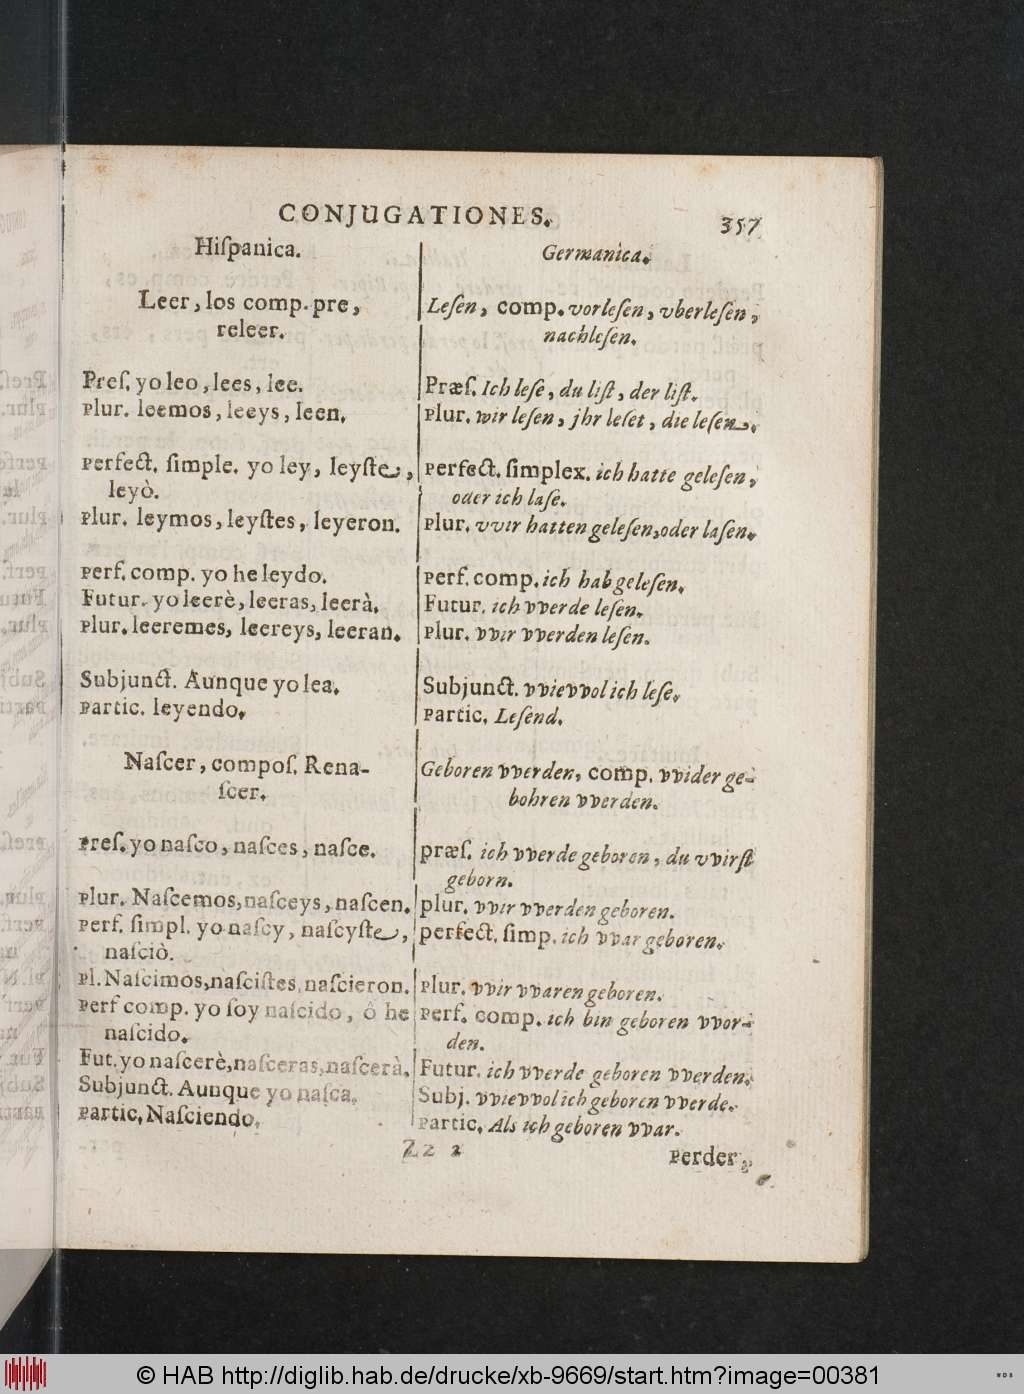 CONJUGATIONES.
357
Hiſpanica.
Leer, los comp. pre,
releer.
Preſ. yo leo, lees, lee.
Plur. leemos, leeys, leen.
Perfect. ſimple. yo ley, leyſte,
leyò.
Plur. leymos, leyſtes, leyeron.
Perf. comp. yo he leydo.
Futur. yo leerè, leeras, leerà.
Plur. leeremes, leereys, leeran.
Subjunct. Aunque yo lea.
Partic. leyendo.
Naſcer, compoſ. Rena-
ſcer.
Preſ. yo naſco, naſces, naſce.
Plur. Naſcemos, naſceys, naſcen.
Perf. ſimpl. yo naſcy, naſcyſte,
naſciò.
Pl. Naſcimos, naſciſtes, naſcieron.
Perf comp. yo ſoy naſcido, ò he
naſcido.
Fut. yo naſcerè, naſceras, naſcerà.
Subjunct. Aunque yo naſca.
Partic. Naſciendo.
Germanica.
Leſen, comp. vorleſen, vberleſen,
nachleſen.
Præſ. Ich leſe, du liſt, der liſt.
Plur. wir leſen, jhr leſet, die leſen.
Perfect. ſimplex. ich hatte geleſen,
oder ich laſe.
Plur. vvir hatten geleſen, oder laſen.
Perf. comp. ich hab geleſen.
Futur. ich vverde leſen.
Plur. vvir vverden leſen.
Subjunct. vvievvol ich leſe.
Partic. Leſend.
Geboren vverden, comp. vvider ge-
bohren vverden.
præſ. ich vverde geboren, du vvirſt
geborn.
plur. vvir vverden geboren.
perfect. ſimp. ich vvar geboren.
Plur. vvir vvaren geboren.
Perf. comp. ich bin geboren vvor-
den.
Futur. ich vverde geboren vverden.
Subj. vvievvol ich geboren vverde.
Partic. Als ich geboren vvar.
Zz 2
Perder,
© HAB http://diglib.hab.de/drucke/xb-9669/start.htm?image=00381